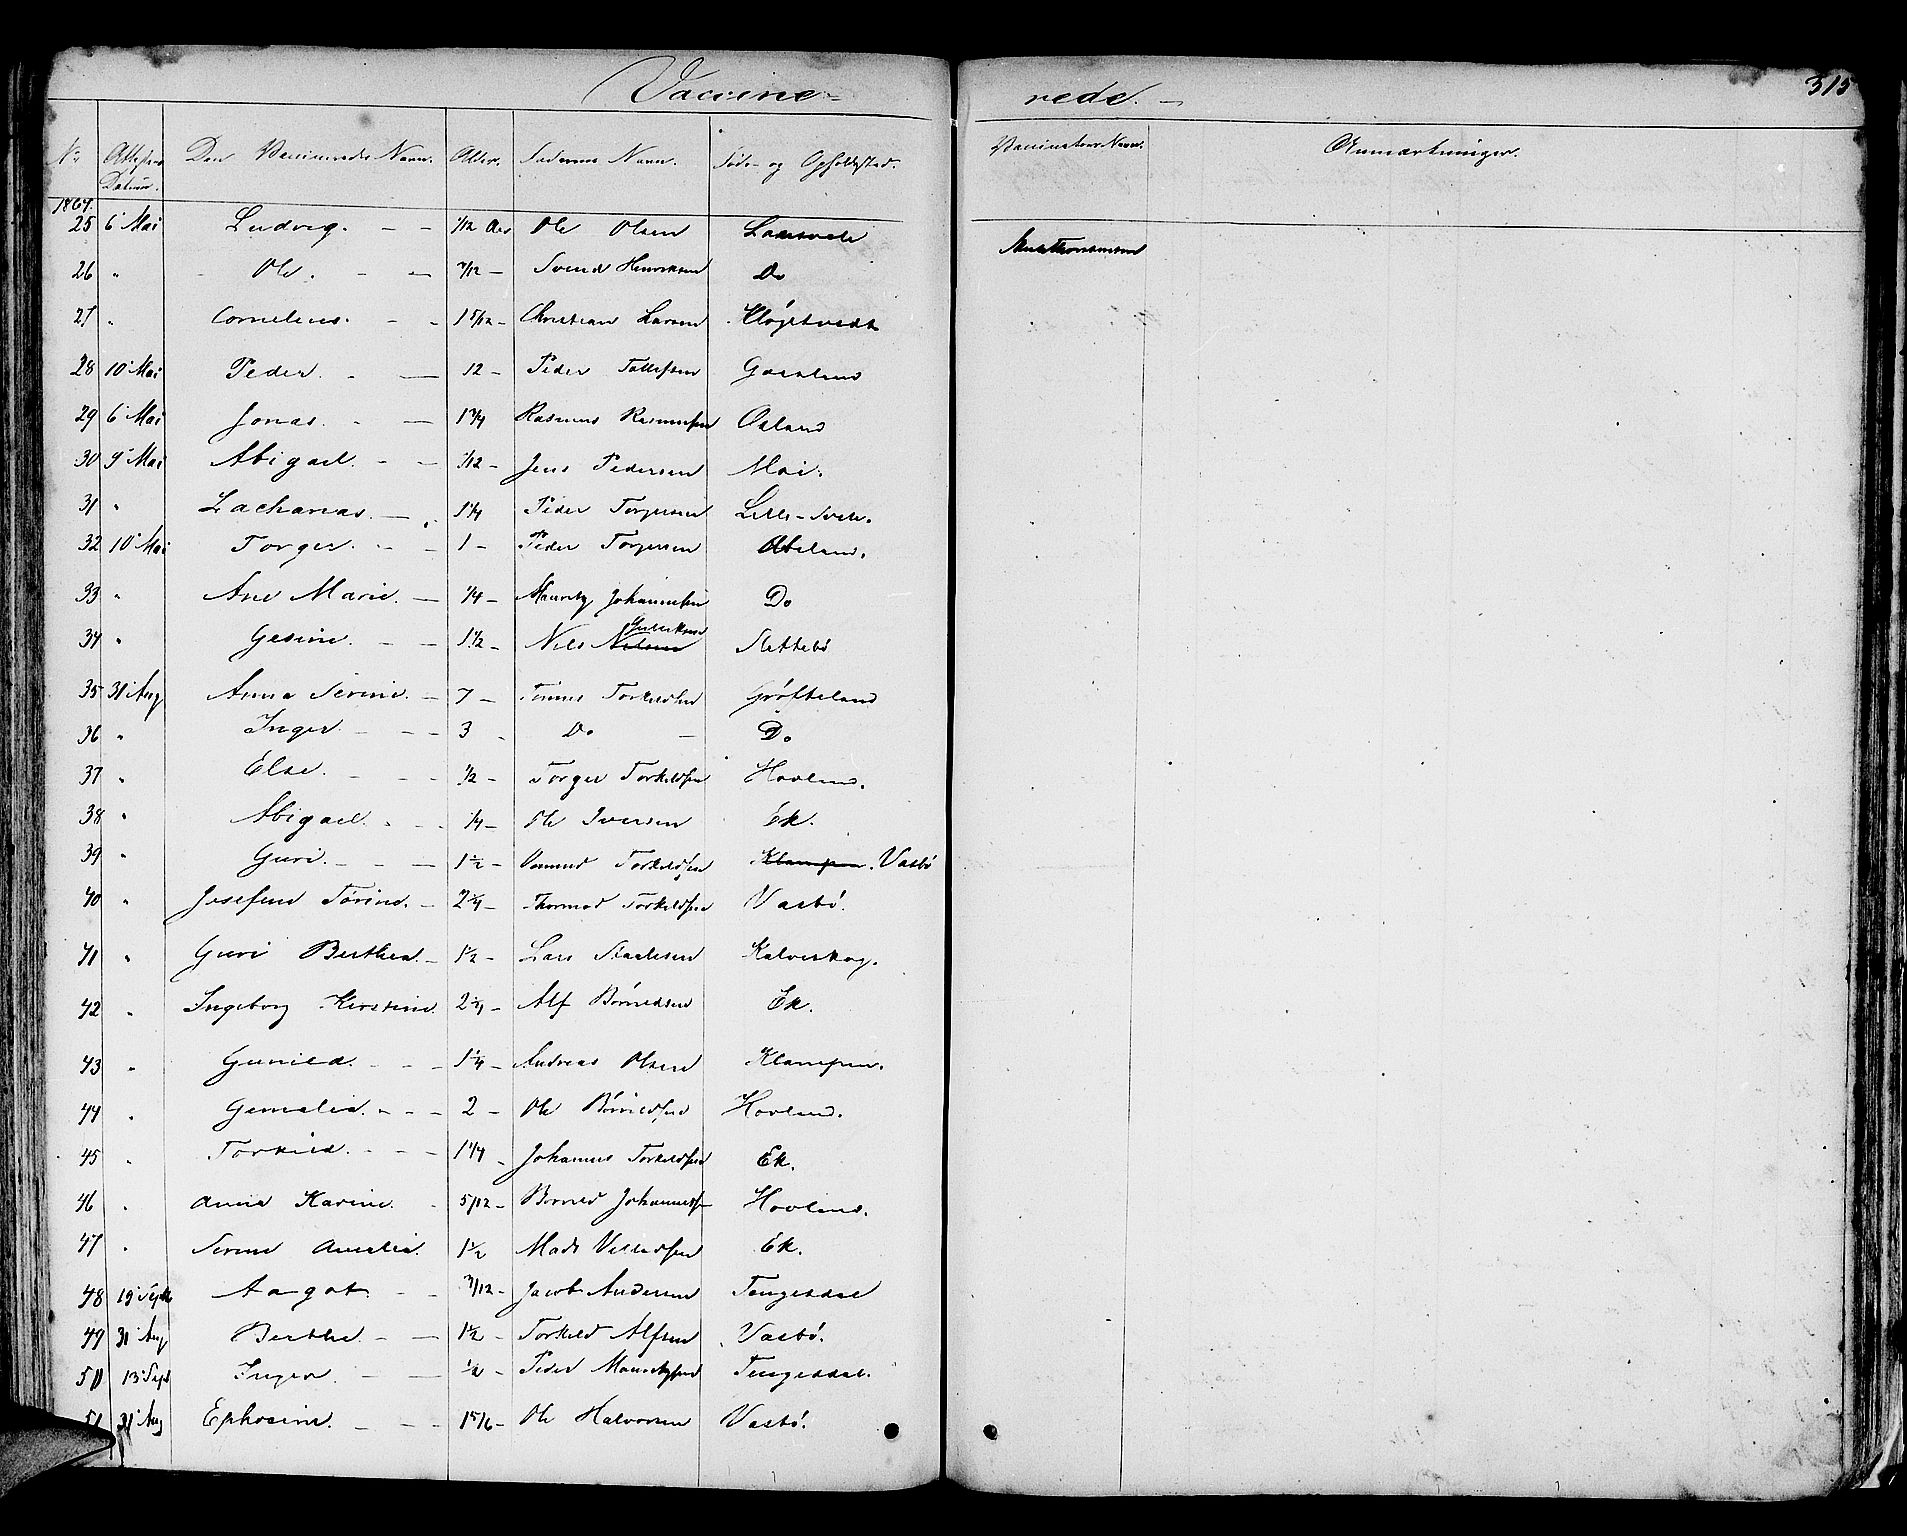 Vaccine-
rede. —
315
No
Attestens Datum.
Den Vaccineredes Navn.
Alder.
Faderens Navn.
Føde- og Opholdssted.
Vaccinateurs Navn.
Anmærkninger.
1867.
25 6 Mai Ludvig. — — Aar Ole Olsen
26 " Ole. — — 7/12 — Svend Henriksen Do
27 " Cornelius. — — 1 5/12 — Christian Larsen
28 10 Mai Peder. — — 12 — Peder Tollefsen
29 6 Mai Jonas. — — 1 3/4 Rasmus Rasmussen Aaland
30 9 Mai Abigael. — — Jens Pedersen Moi.
31 " Zacharias. — 1 1/4 Peder Torgersen Lille-Svele.
32 10 Mai Torger. — — 1 — Peder Torgersen Abeland.
33 " Ane Marie. — 1/4 — Mauritz Johannesen Do
34 " Gesine. — — 1 1/2 — Nils Slettebø
35 31 Aug Anna Serine. — 7 — Tønnes Torkildsen Grøfteland
36 " Inger. — — — 3 — Do — Do
37 " Else. — — — 1/2 — Torger Torkildsen Hovland.
38 " Abigael. — — 1/4 — Ole Iversen Ek.
39 " Guri. — — — 1 1/2 — Torkildsen Klampen. Vasbø
40 " Josefine Tørine. — 2 1/4 — Thormod Torkildsen Vasbø.
41 " Guri Berthea. — 1 1/2 — Lars Staalesen Kalveskog.
42 " Ingeborg Kirstine. Alf Børildsen Ek.
43 " Gunild. — — — 1 1/4 — Andreas Olsen Klampen.
44 " Gemalia. — — — 2 — Ole Børildsen Hovland.
45 " Torkild. — — — 1 1/4 — Johannes Torkildsen Ek.
46 " Anna Karine. — 5/12 — Børild Johannessen Hovland.
47 " Serine Amalia. 1 1/2 Mads Villadsen Ek.
48 19 Septb Aagot. — — 3/12 — Jacob Andersen Tengesdal
49 31 Aug Berthe. — — 1 1/2 — Torkild Alfsen Vasbø.
50 13 Sept Inger. — — 1/2 — Peder Mauritzsen Tengesdal.
51 31 Aug Ephosine. — — — 1 5/6 — Ole Halvorsen Vasbø.